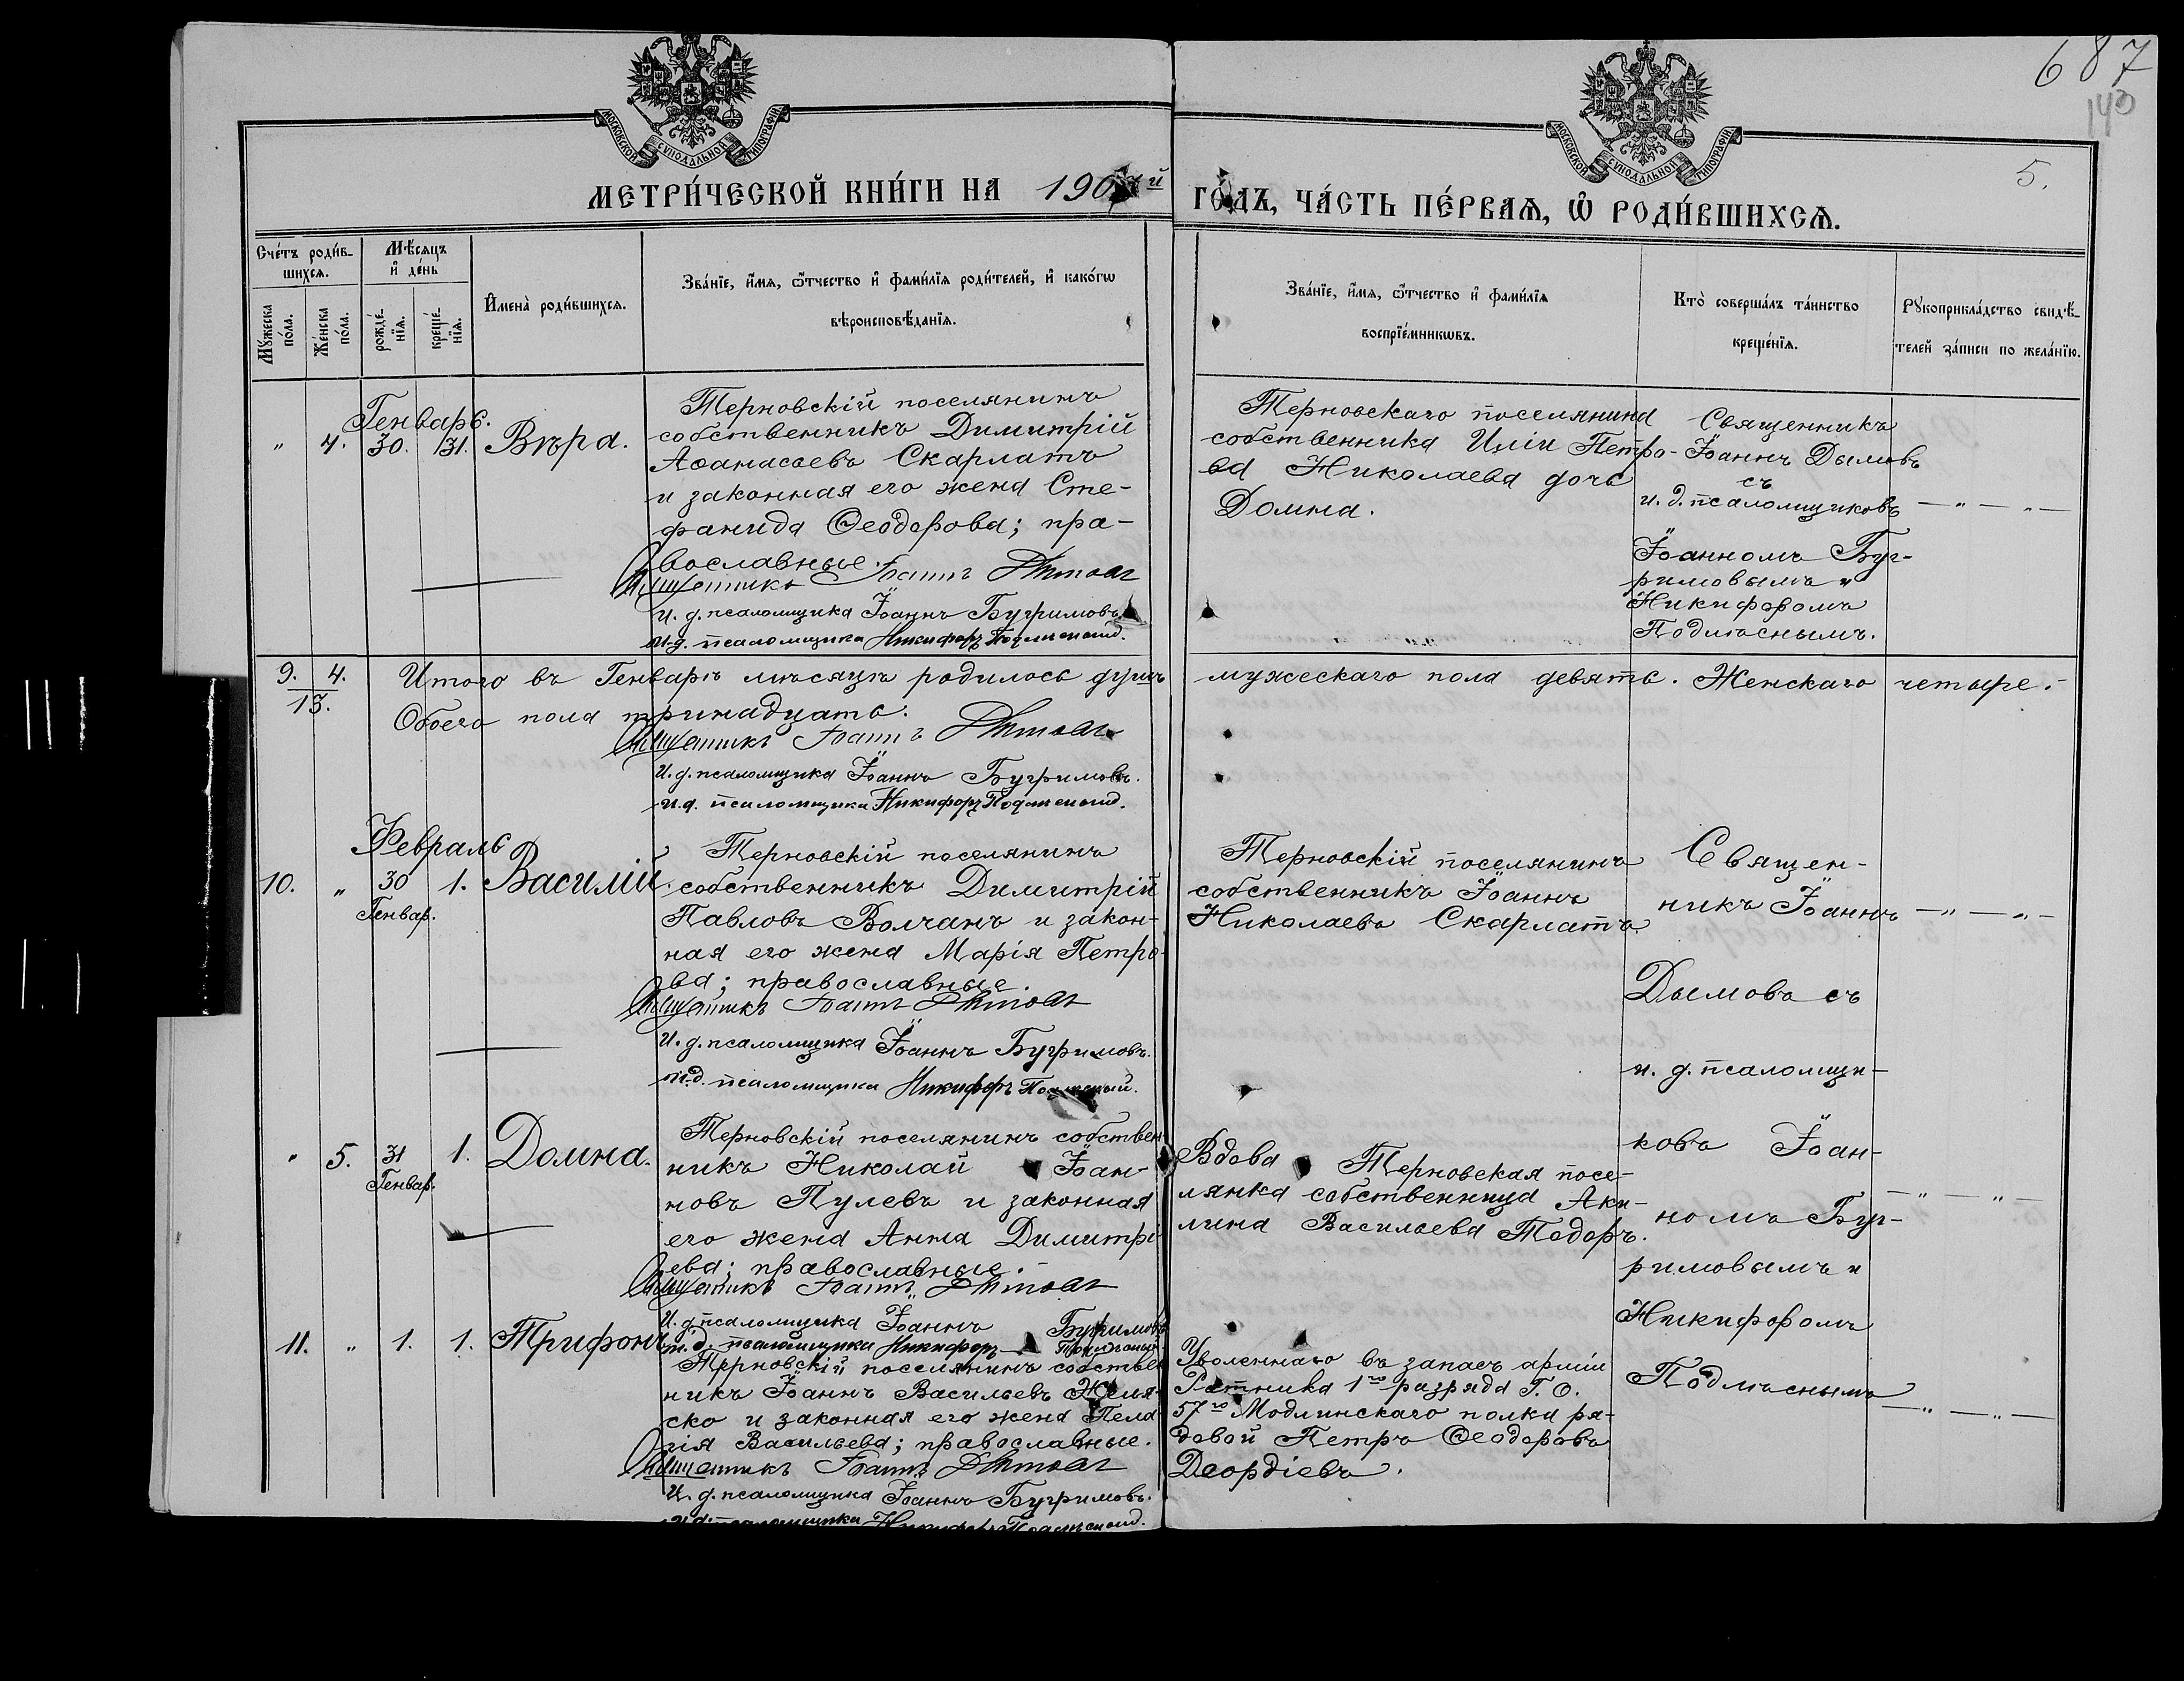 687
140
5.
МОСКОВСКОЙ СѴНОДАЛЬНОЙ ТИПОГРАФІИ
МОСКОВСКОЙ СѴНОДАЛЬНОЙ ТИПОГРАФІИ
МЕТРИ́ЧЕСКОЙ КНИ́ГИ НА 190 й ГО́ДЪ, ЧА́СТЬ ПЕ́РВАѦ, Ѡ҆ РОДИ́ВШИХСѦ.
Сче́тъ роди́в-
шихся.
Мꙋ́жеска по́ла.
Же́нска по́ла.
Мѣ́сяцъ
и҆ де́нь
рожде́-
нїя.
креще́-
нїя.
И҆мена̀ роди́вшихся.
Зва́нїе, и҆́мя, ѻ҆́тчество и҆ фами́лїя роди́телей, и҆ како́гѡ
вѣроисповѣ́данїя.
Зва́нїе, и҆́мя, ѻ҆́тчество и҆ фами́лїя
воспрїе́мникѡвъ.
Кто̀ соверша́лъ та́инство
креще́нїя.
Рꙋкоприкла́дство свидѣ́-
телей за́писи по жела́нїю.
Генварь.
" 4. 30. 31. Вѣра.
Терновскій поселянинъ
собственникъ Димитрій
Аѳанасьевъ Скарлатъ
и законная его жена Сте-
фанида Ѳеодорова; пра-
вославные.
Священникъ Іоаннъ Дымовъ
И. д. псаломщика Іоаннъ Бугримовъ.
И. д. псаломщика Никифоръ Подлѣсный.
Терновскаго поселянина
собственника Иліи Петро-
ва Николаева дочь
Домна.
Священникъ
Іоаннъ Дымовъ
съ
и. д. псаломщиковъ
Іоанномъ Буг-
римовымъ и
Никифоромъ
Подлѣснымъ.
— " — " —
9. 4.
13.
Итого въ Генварѣ мѣсяцѣ родилось душъ мужескаго пола девять. Женскаго четыре.
Обоего пола тринадцать.
Священникъ Іоаннъ Дымовъ
И. д. псаломщика Іоаннъ Бугримовъ.
И. д. псаломщика Никифоръ Подлѣсный.
Февраль
10. " 30 1. Василій.
Генвар.
Терновскій поселянинъ
собственникъ Димитрій
Павловъ Волчанъ и закон-
ная его жена Марія Петро-
ва; православные.
Священникъ Іоаннъ Дымовъ
И. д. псаломщика Іоаннъ Бугримовъ.
И. д. псаломщика Никифоръ Подлѣсный.
Терновскій поселянинъ
собственникъ Іоаннъ
Николаевъ Скарлатъ.
Священ-
никъ Іоаннъ
Дымовъ съ
и. д. псаломщи-
ковъ Іоан-
номъ Буг-
римовымъ и
Никифоромъ
Подлѣснымъ
— " — " —
" 5. 31 1. Домна.
Генвар.
Терновскій поселянинъ собствен-
никъ Николай Іоан-
новъ Пулевъ и законная
его жена Анна Димитрі-
ева; православные.
Священникъ Іоаннъ Дымовъ
И. д. псаломщика Іоаннъ Бугримовъ
И. д. псаломщика Никифоръ Подлѣсный.
Вдова Терновская посе-
лянка собственница Аки-
лина Васильева Тодоръ.
— " — " —
11. " 1. 1. Трифонъ
Терновскій поселянинъ собствен
никъ Іоаннъ Васильевъ Желя-
ско и законная его жена Пела-
гія Васильева; православные.
Священникъ Іоаннъ Дымовъ
И. д. псаломщика Іоаннъ Бугримовъ.
И. д. псаломщика Никифоръ Подлѣсный.
Уволеннаго въ запасъ арміи
Ратника 1го разряда Г. О.
57го Модлинскаго полка ря-
довой Петръ Ѳеодоровъ
Деордіевъ.
— " — " —